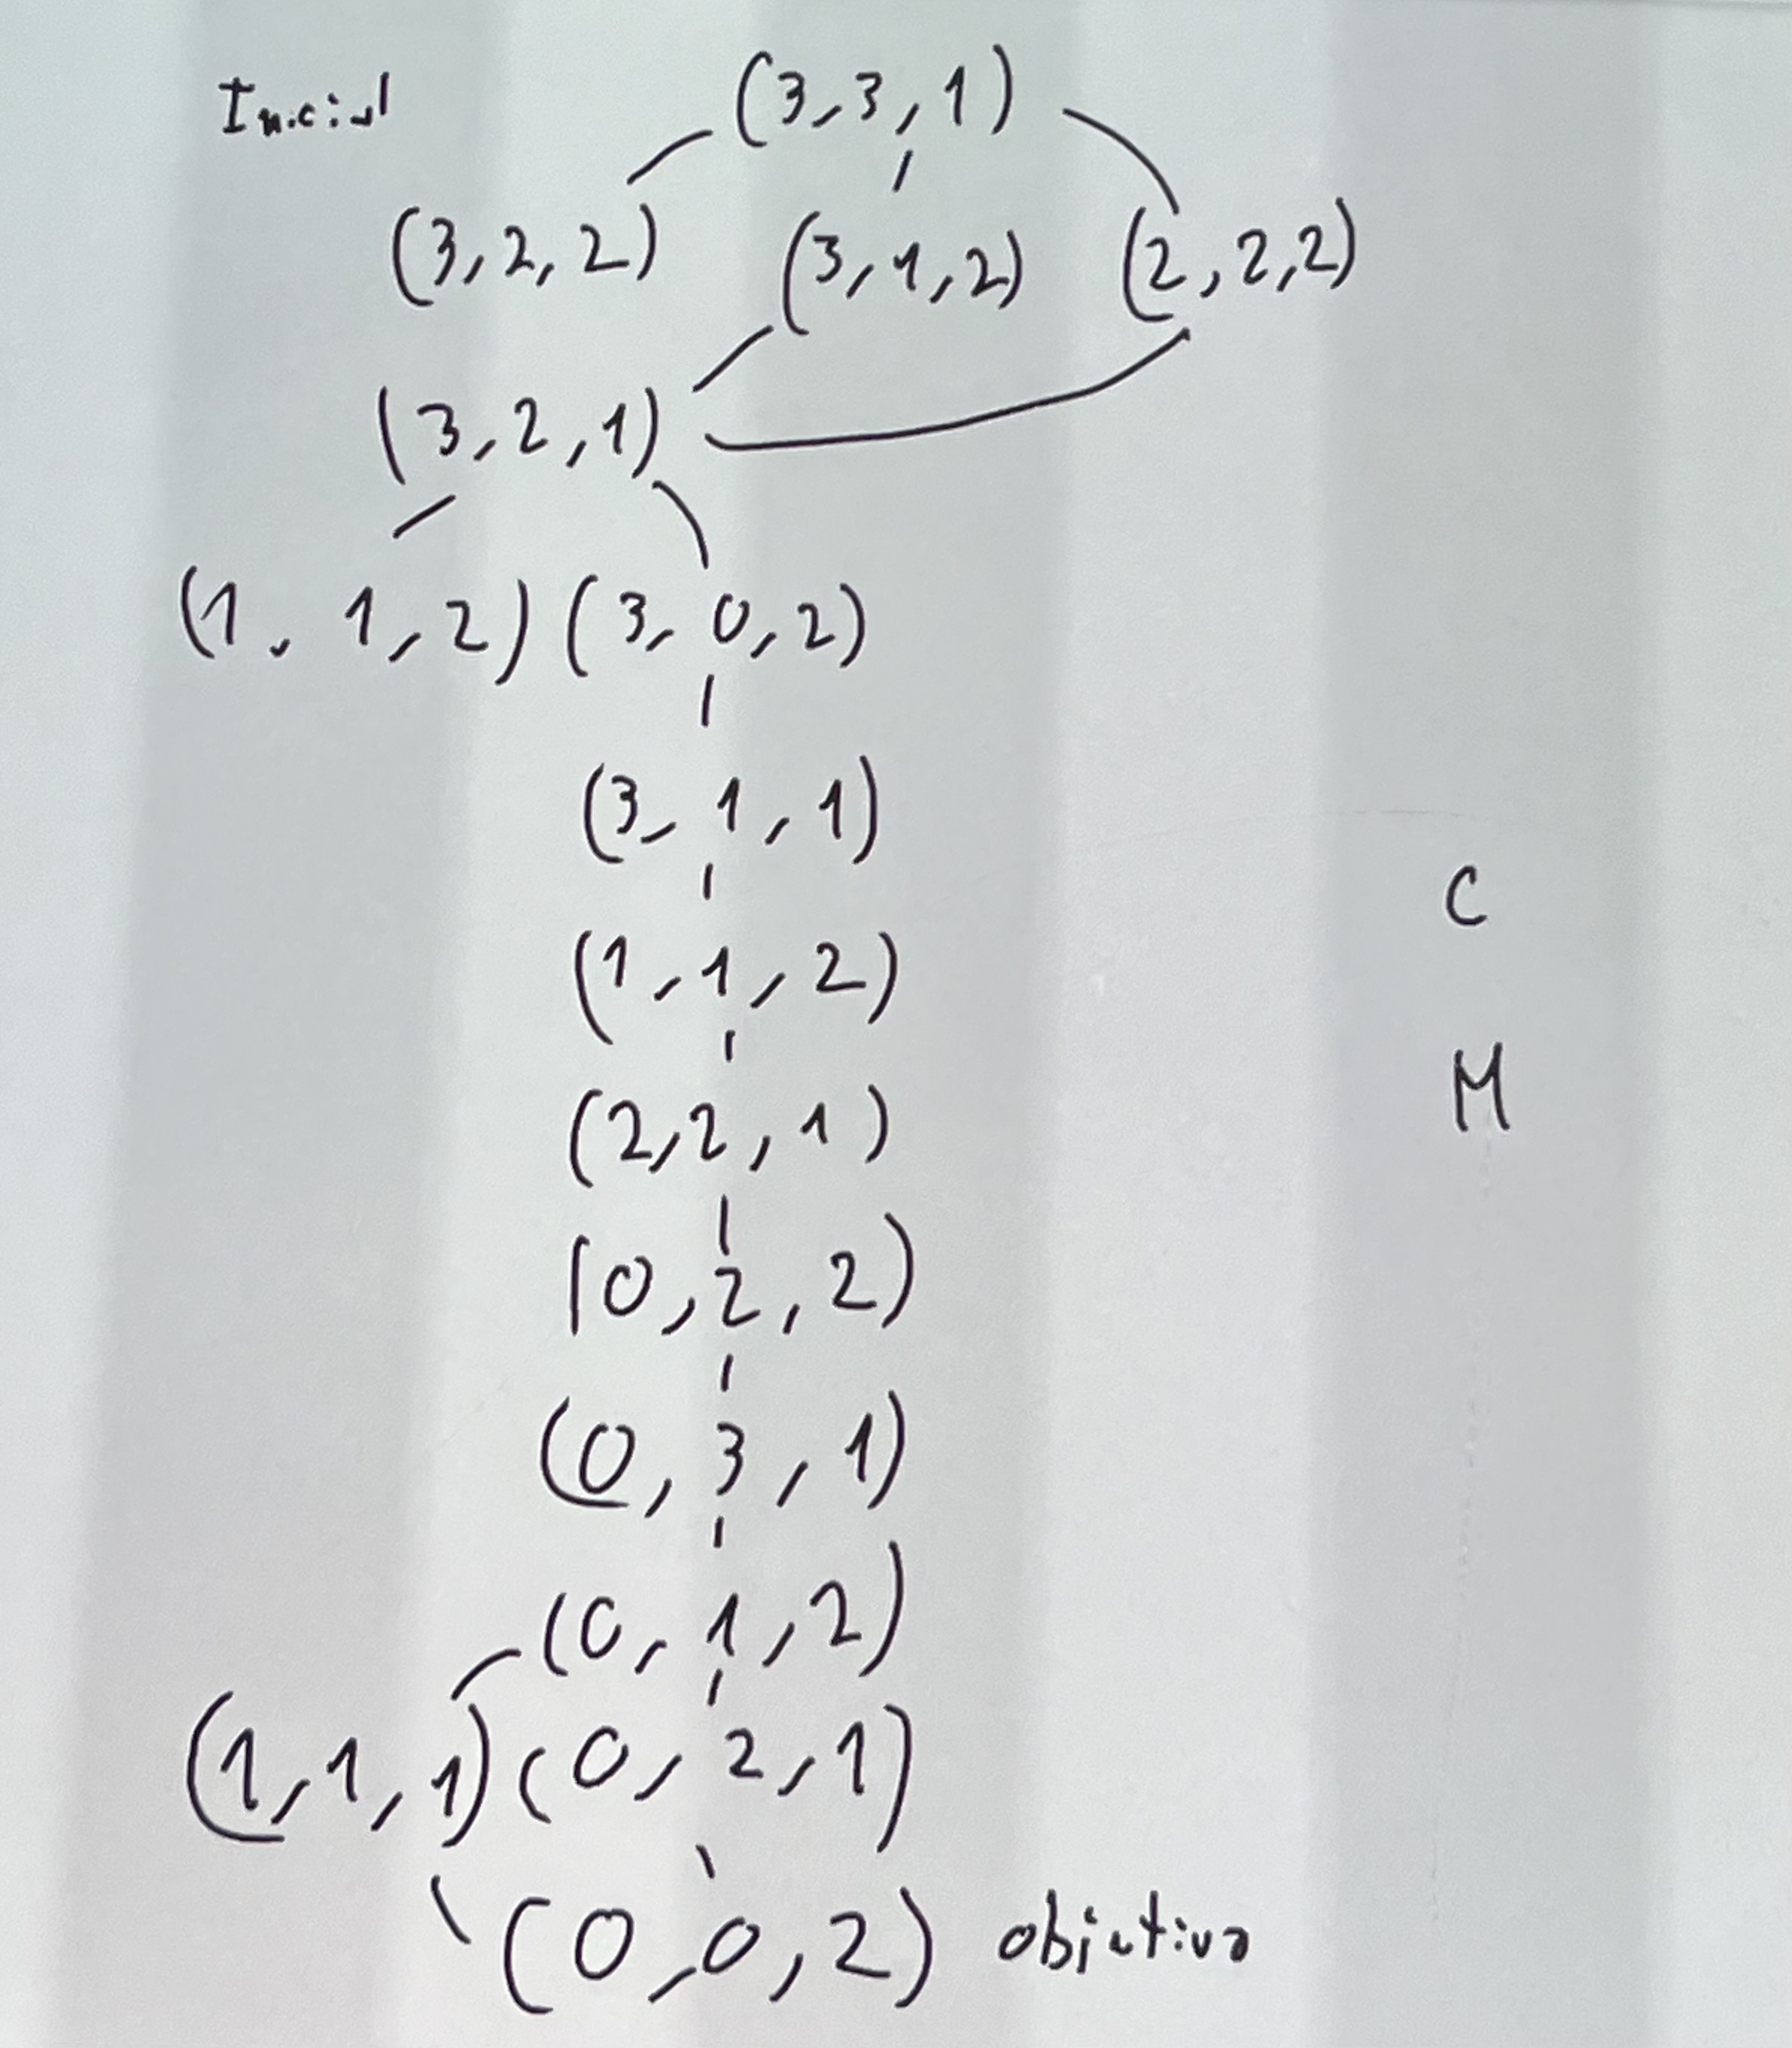 Inicial (3,3,1)
(3,2,2) (3,1,2) (2,2,2)
(3,2,1)
(1,1,2) (3,0,2)
(3,1,1)
C
(1,1,2)
M
(2,2,1)
(0,2,2)
(0,3,1)
(0,1,2)
(1,1,1) (0,2,1)
(0,0,2) objetivo